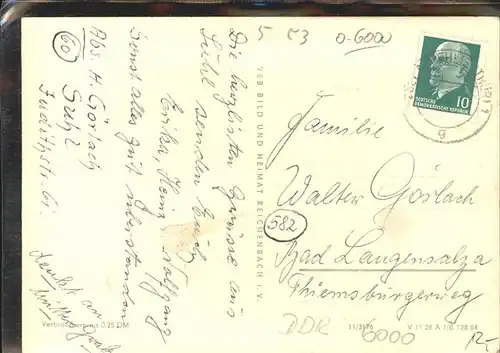 Abs. H. Görlach
Suhl
60
Die herzlichsten Grüsse aus
Suhl senden Euch
Erika, Heinz, Wolfgang
Sonst alles gut überstanden
Denkt an
5 53
0-6000
VEB BILD UND HEIMAT REICHENBACH I. V.
DEUTSCHE
DEMOKRATISCHE REPUBLIK
10
g
Familie
Walter Görlach
582
Bad Langensalza
Thiemsburgerweg
Verbraucherpreis 0.25 DM
DDR 6000
11/3176
V 11 28 A 1/B 128 64
12,-